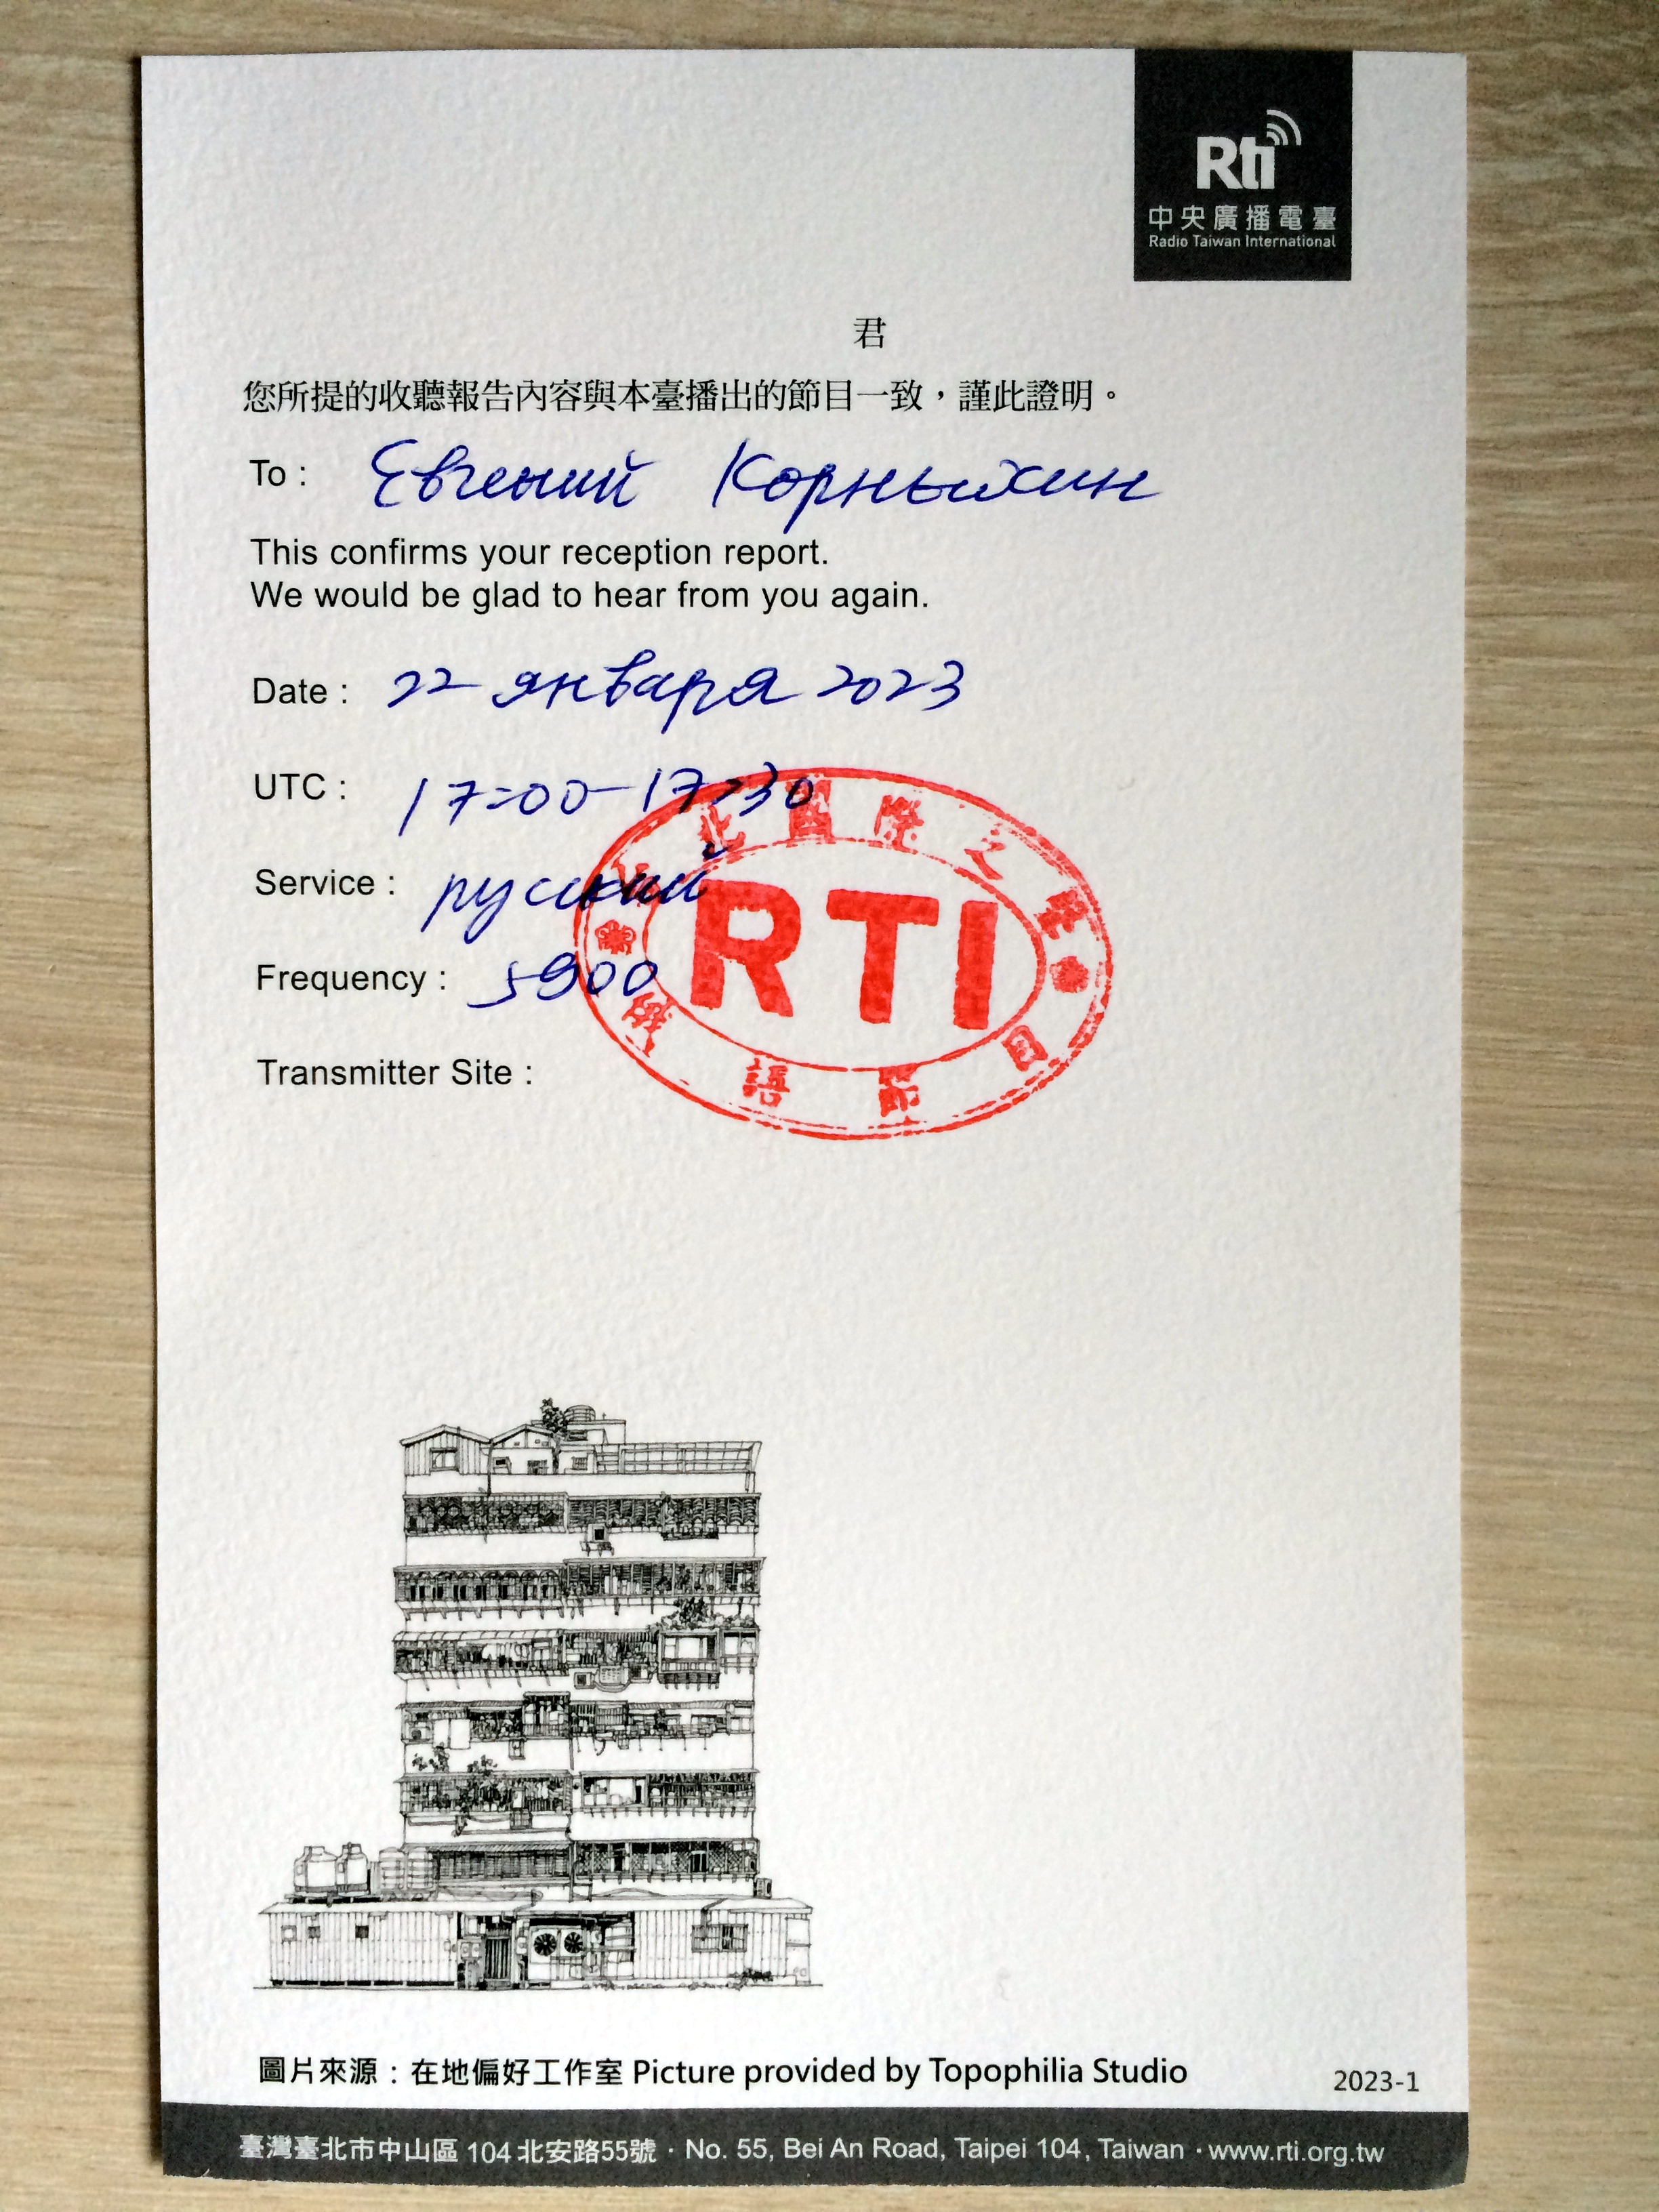 Rti
中央廣播電臺
Radio Taiwan International
君
您所提的收聽報告內容與本臺播出的節目一致，謹此證明。
To : Евгений Корныхин
This confirms your reception report.
We would be glad to hear from you again.
Date : 22 января 2023
UTC : 17:00-17:30
Service : русский
Frequency : 5900
Transmitter Site :
北國際之聲
RTI
俄語節目
圖片來源：在地偏好工作室 Picture provided by Topophilia Studio
2023-1
臺灣臺北市中山區 104 北安路55號 · No. 55, Bei An Road, Taipei 104, Taiwan · www.rti.org.tw